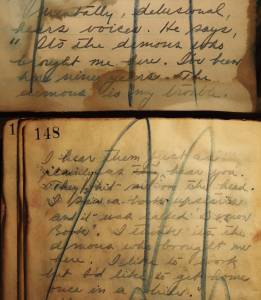 mentally, delusional,
hears voices. He says,
"Its the demons who
brought me here. I've been
here nine years. The
demons is my trouble.
1 148
I hear them just as
plainly as I hear you.
They hit me on the head.
I saw a book upstairs
and it was called Demon
Book". I think it's the
demons who brought me
here. I like to
but I'd like to get home
once in a while."